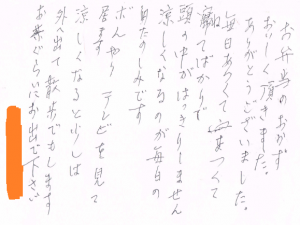 お弁当のおかず
おいしく頂きました。
ありがとうございました。
毎日あつくて
寝てばかりで
頭の中がはっきりしません
涼しくなるのが毎日の
おたのしみです
ボんやりテレビを見て
居ます
涼しくなると少しは
外へ出て散歩でもします
お茶ぐらいにお出で下さい